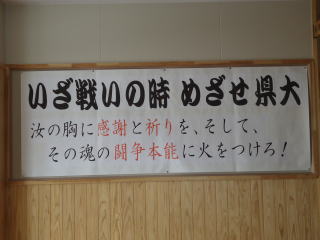 いざ戦いの時 めざせ県大
汝の胸に感謝と祈りを、そして、
その魂の闘争本能に火をつけろ！